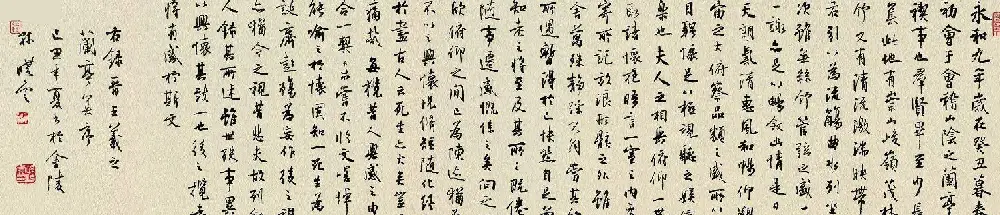 永和九年歲在癸丑暮春
初會于會稽山陰之蘭亭
禊事也群賢畢至少長
集此地有崇山峻嶺茂林
竹又有清流激湍映帶
右引以為流觴曲水列坐
次雖無絲竹管弦之盛一
一詠亦足以暢敘幽情是日
天朗氣清惠風和暢仰觀
宙之士俯察品類之盛所以
目騁懷足以極視聽之娛信
樂也夫人之相與俯仰一世
取諸懷抱晤言一室之內
寄所託放浪形骸之外雖
舍萬殊靜躁不同當其
所遇暫得於己快然自足
知老之將至及其所之既倦
隨事遷感慨係之矣向之
欣俯仰之間已為陳迹猶
不以之興懷況修短隨化終
於盡古人云死生亦大矣豈
痛哉每攬昔人興感之由
合一契未嘗不臨文嗟悼
能喻之於懷固知一死生為
誕齊彭殤為妄作後之視
亦猶今之視昔悲夫故列
人錄其所述雖世殊事異
以興懷其致一也後之攬者
將有感於斯文
右錄晉王羲之
蘭亭集序
己丑年夏書於金陵
林